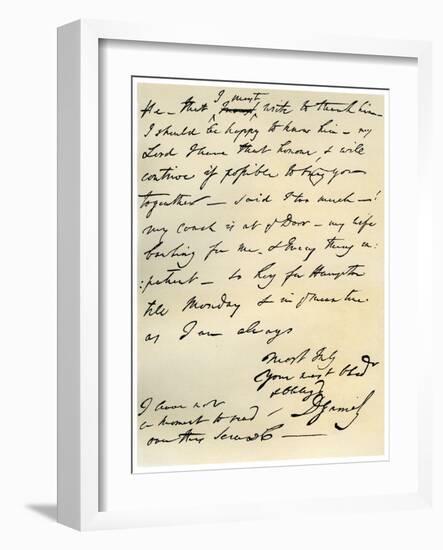 I must
He - that write to thank him -
I should be happy to know him - my
Lord I have that honour, & will
contrive if possible to bring you
together - said I too much - !
my coach is at ye Door - my Wife
bawling for me, & Every thing im
:patient - so Hey for Hampton
till Monday & in ye mean time
as I am always
Most truly
Your most Obedt
& oblig'd
D Garrick
I have not
a moment to read
over this Scrawl